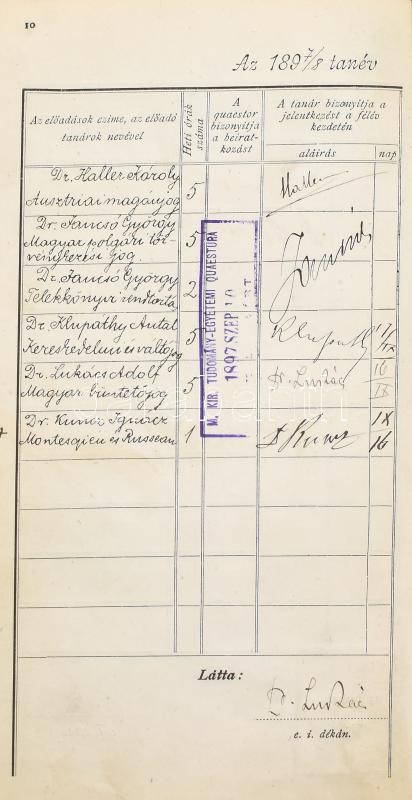 10
Az 1897/8 tanév
Az előadások czime, az előadó tanárok nevével
Heti órák száma
A quaestor bizonyitja a beirat-kozást
A tanár bizonyitja a jelentkezést a félév kezdetén
aláirás
nap
Dr. Haller Károly
Ausztriai magánjog 5 Haller
Dr. Jancsó György
Magyar polgári tör-
vénykezési jog 5
Dr. Jancsó György
Telekkönyvi rendtartás 2 Jancsó
Dr. Klupáthy Antal
Kereskedelmi és váltójog 5 Klupathy 17/IX
Dr. Lukács Adolf
Magyar büntetőjog 5 D. Lukács 16/IX
Dr. Kunoz Ignácz
Montesqieu és Russeau 1 Dr Kunoz IX 16
M. KIR. TUDOMÁNY-EGYETEMI QUAESTURA
1897 SZEP 10
Látta:
D. Lukács
e. i. dékán.